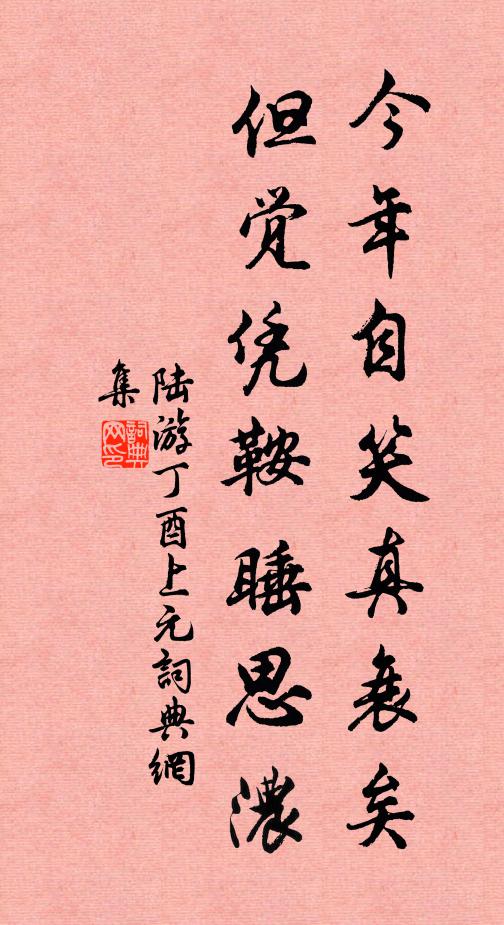 今年自笑真衰矣
但觉凭鞍睡思浓
陆游丁酉上元詞典網
集
詞典
网印